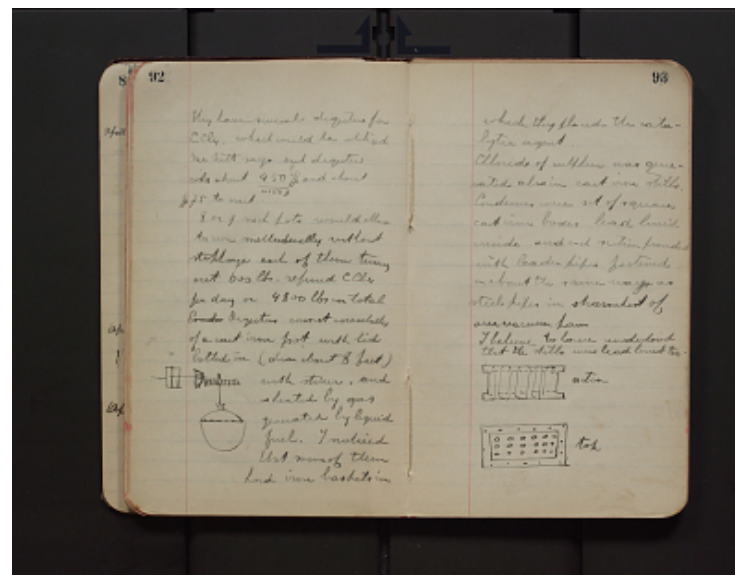 92
They have several digesters for
CCl4. which would be
Mr Hett says each digester
costs about 950 $ and about
$25 to
8 or 9 such pots would allow
to run methodically without
stoppage each of them turning
out 600 lbs. refined CCl4
per day or 4800 lbs in total
Digesters consist essentially
of a cast iron pot with lid
bolted on (diam about 8 feet)
with stirrer, and
heated by gas
generated by liquid
fuel. I noticed
that some of them
had iron baskets in
93
which they placed the cata-
lytic agent.
Chloride of sulphur was gene-
rated also in cast iron stills.
Condensers were set of square
cast iron boxes lead lined
inside and
with leaden pipes fastened
in about the same way as
steel pipes in
I believe to have understood
that the stills were lead lined too.
top